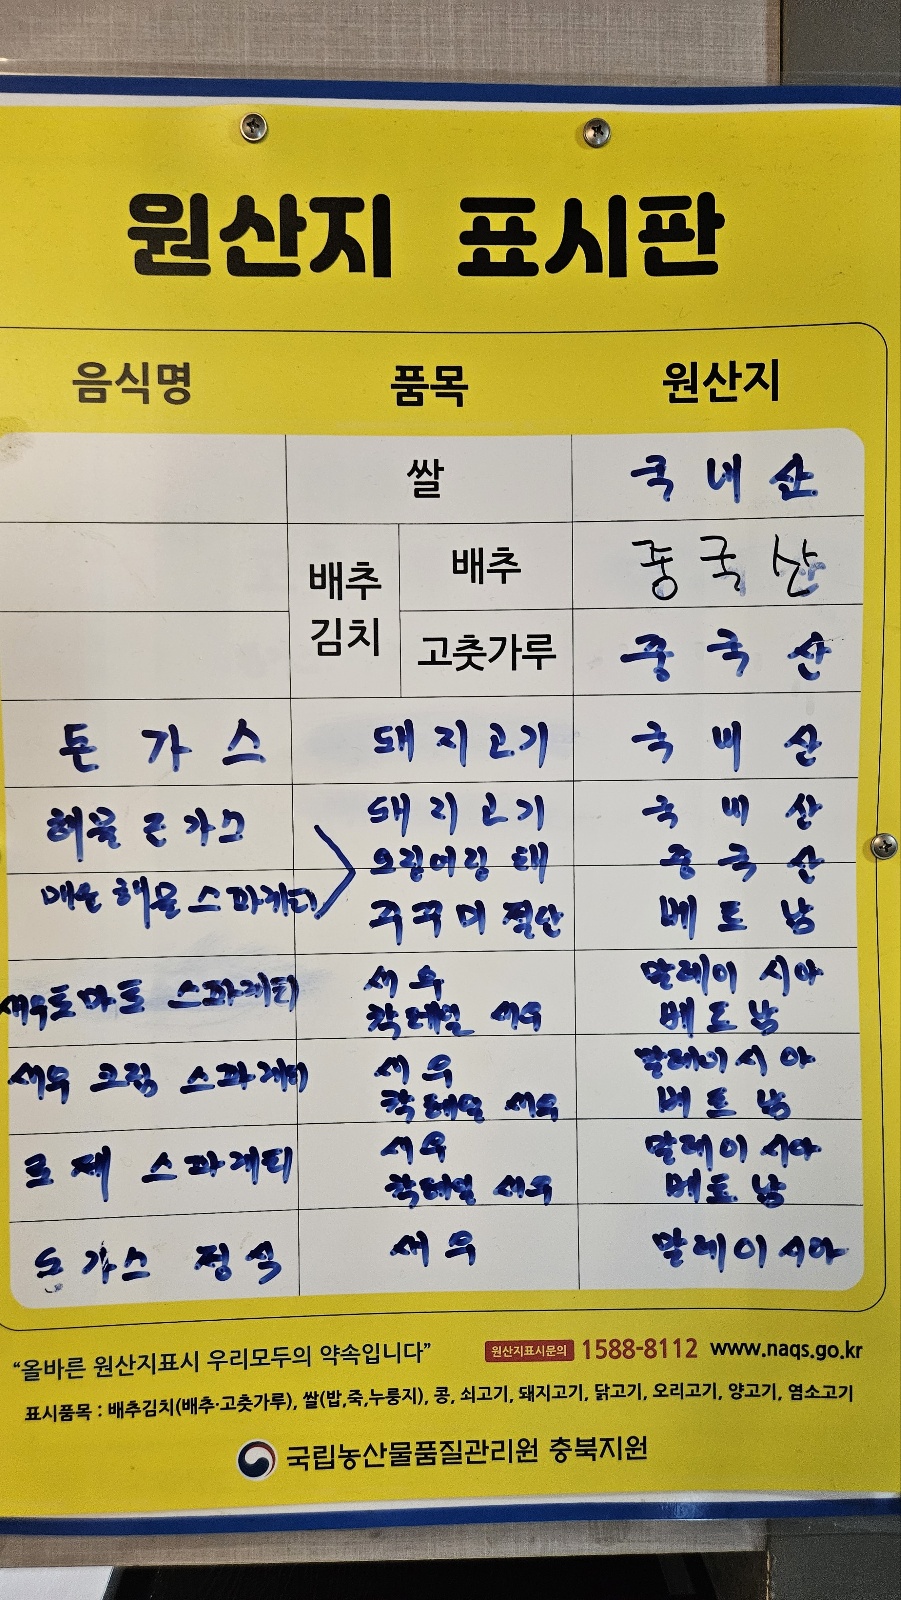 원산지 표시판
음식명 품목 원산지
쌀 국내산
배추김치 배추 중국산
고춧가루 중국산
돈가스 돼지고기 국내산
해물돈가스 돼지고기 국내산
오징어링 태 중국산
매운해물스파게티 쭈꾸미 절단 베트남
새우토마토 스파게티 새우 말레이시아
칵테일 새우 베트남
새우 크림 스파게티 새우 말레이시아
칵테일 새우 베트남
로제 스파게티 새우 말레이시아
칵테일 새우 베트남
돈가스 정식 새우 말레이시아
“올바른 원산지표시 우리모두의 약속입니다” 원산지표시문의 1588-8112 www.naqs.go.kr
표시품목 : 배추김치(배추·고춧가루), 쌀(밥,죽,누룽지), 콩, 쇠고기, 돼지고기, 닭고기, 오리고기, 양고기, 염소고기
국립농산물품질관리원 충북지원